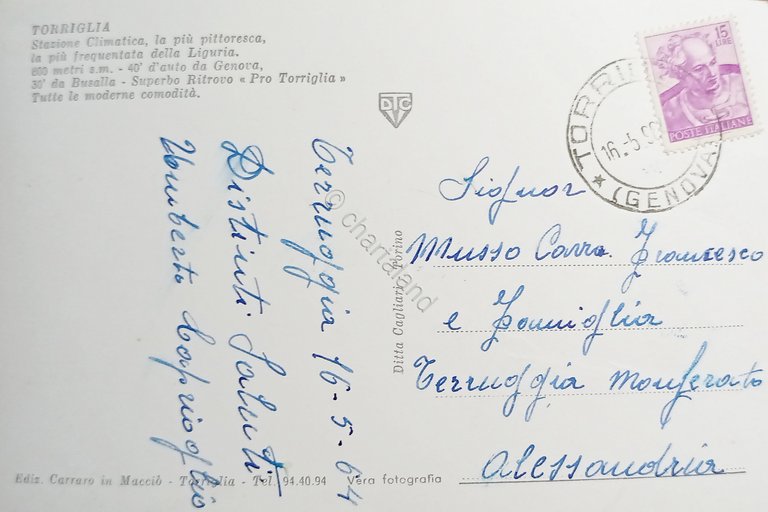 TORRIGLIA
Stazione Climatica, la più pittoresca,
la più frequentata della Liguria.
800 metri s.m. - 40' d'auto da Genova,
30' da Busalla - Superbo Ritrovo « Pro Torriglia »
Tutte le moderne comodità.
DTC
15
LIRE
POSTE ITALIANE
16.-5.
(GENOVA)
Terruggia 16-5-64
Distinti Saluti
Umberto Caprioglio
© chartaland
Ditta Cagliari, Torino
Signor
Musso Carra. Francesco
e Famiglia
Terruggia Monferrato
Alessandria
Ediz. Carraro in Macciò - Torriglia - Tel. 94.40.94
Vera fotografia